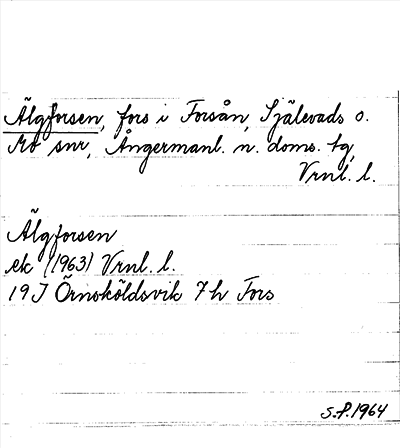 Älgforsen, fors i Forsån, Själevads o.
Mo snr, Ångermanl. n. doms. tg,
Vrnl. l.
Älgforsen
ek (1963) Vrnl. l.
19 J Örnsköldsvik 7 h Fors
S.P. 1964